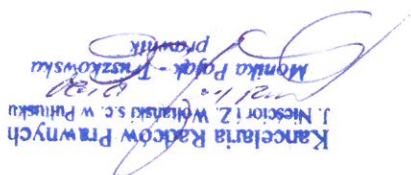 Kancelaria Radców Prawnych
J. Nieścior i Z. Woliański s.c. w Pułtusku
Monika Pająk - Truszkowska
prawnik